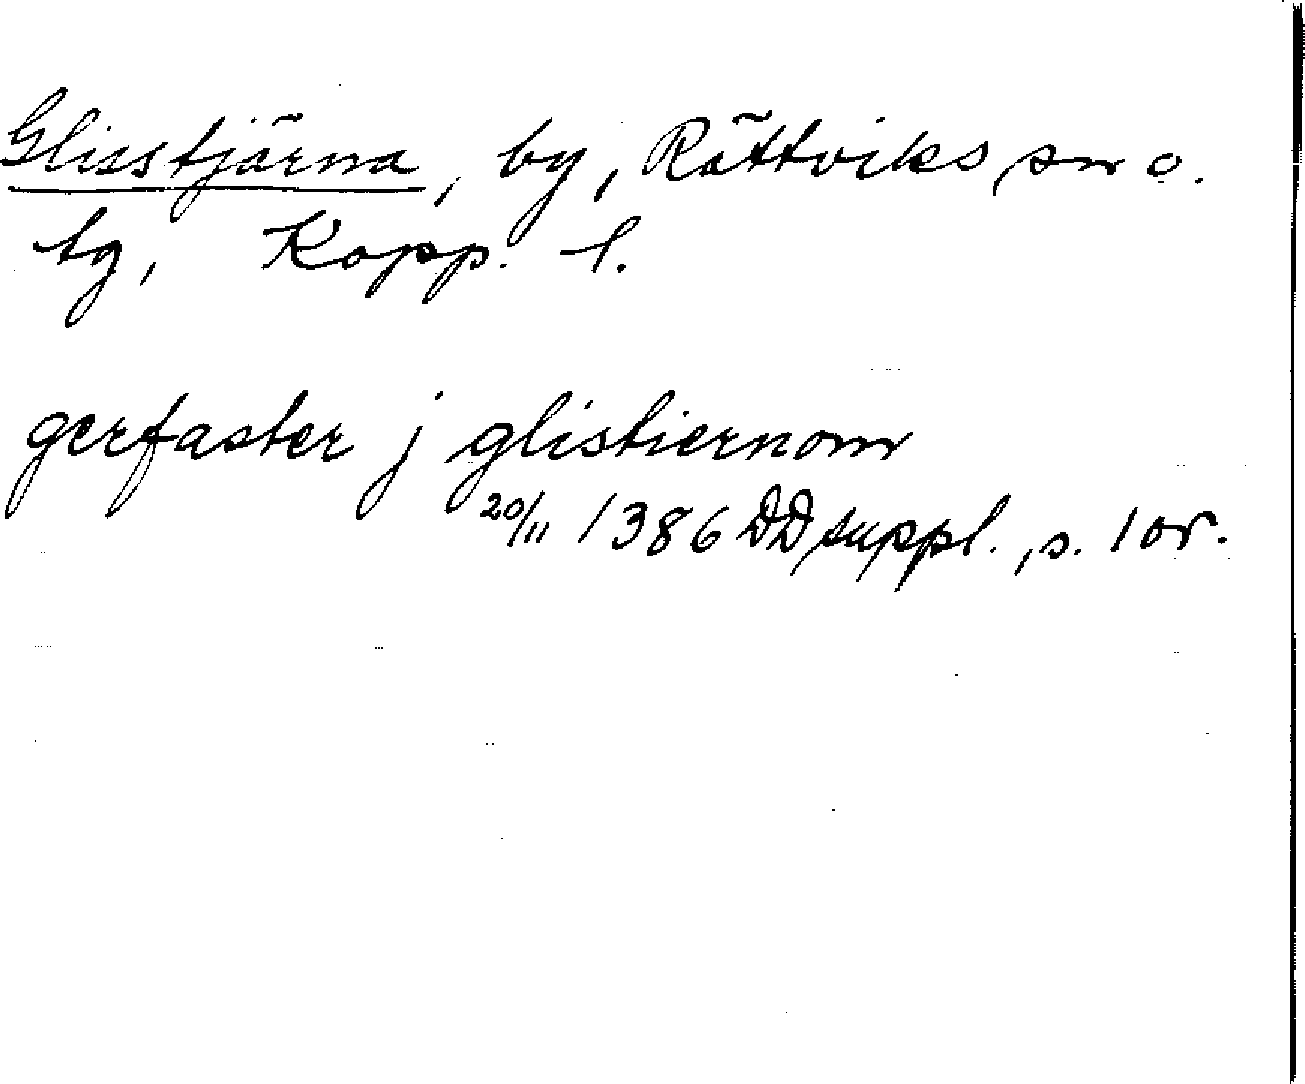 Glisstjärna, by, Rättviks sn o.
tg, Kopp. l.
gerfaster j glistiernom
20/11 1386 DD suppl., s. 1 or.